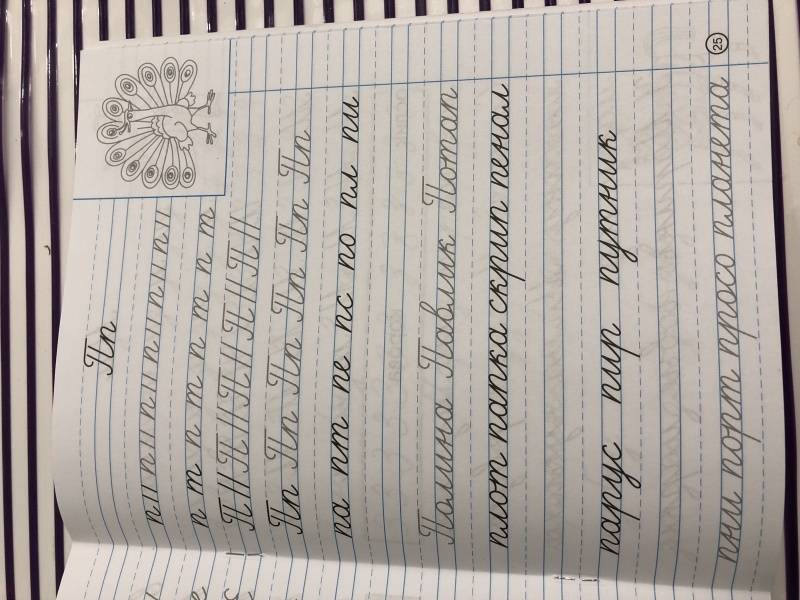 Пп
п || п || п || п || п || п ||
п т п т п т п т
П || П || П || П || П ||
Пп Пп Пп Пп Пп
па пт пе пс по пл пи
Полина Павлик Потап
плот папка скрип пенал
парус пир путник
пни порт просо планета
25